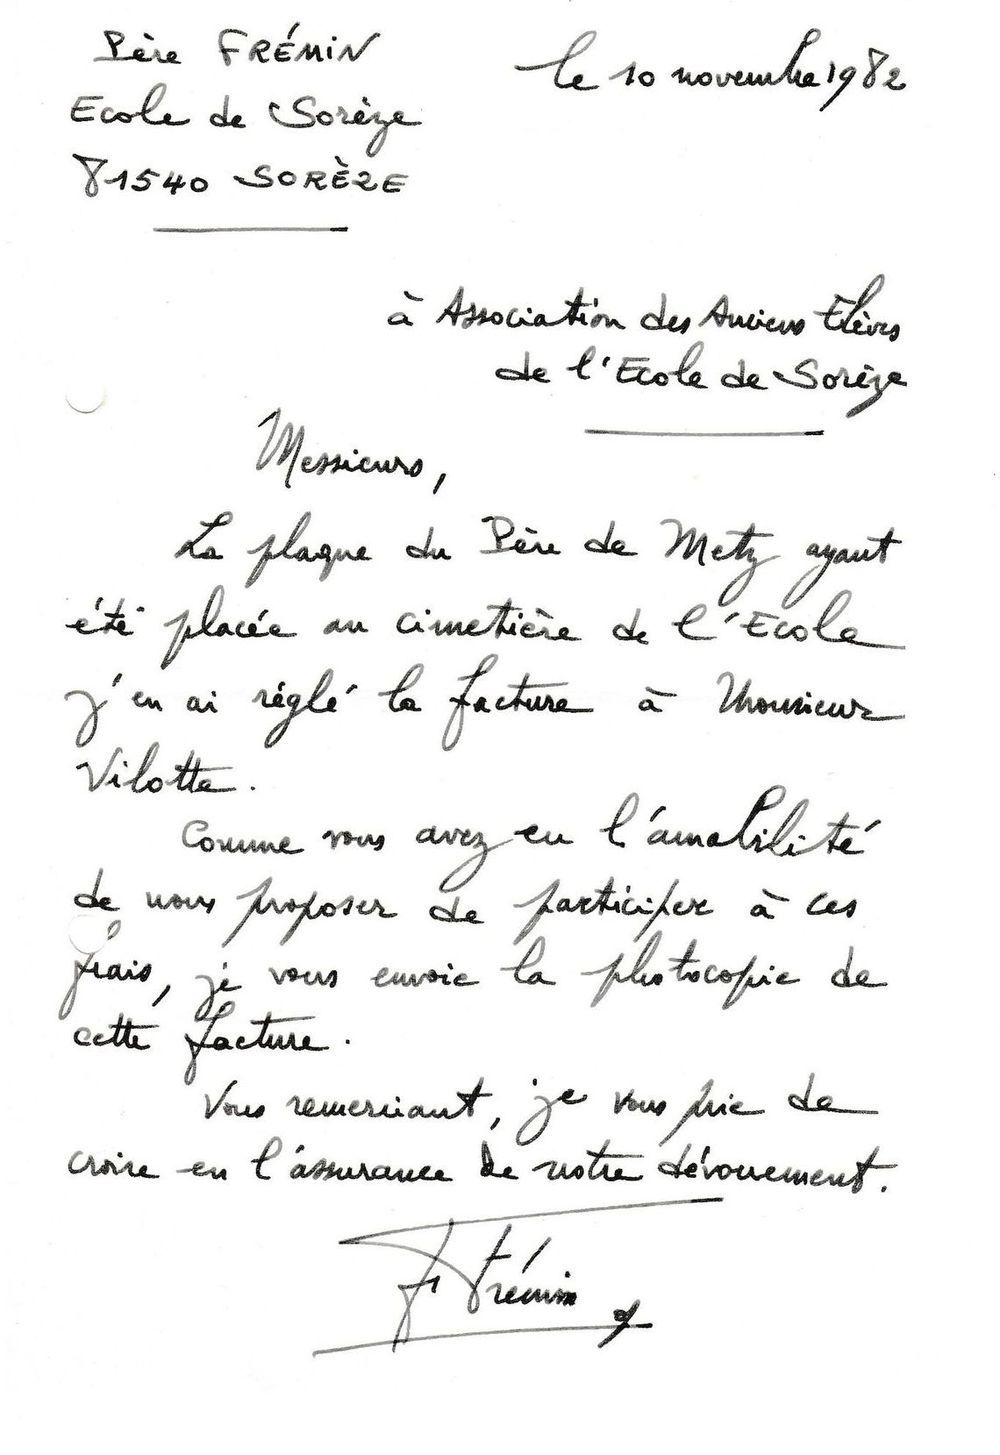 Père FRÉMIN
le 10 novembre 1982
Ecole de Sorèze
81540 SORÈZE
à Association des Anciens Elèves
de l'Ecole de Sorèze
Messieurs,
La plaque du Père de Metz ayant
été placée au cimetière de l'Ecole
j'en ai réglé la facture à Monsieur
Vilotte.
Comme vous avez eu l'amabilité
de nous proposer de participer à ces
frais, je vous envoie la photocopie de
cette facture.
Vous remerciant, je vous prie de
croire en l'assurance de notre dévouement.
Frémin